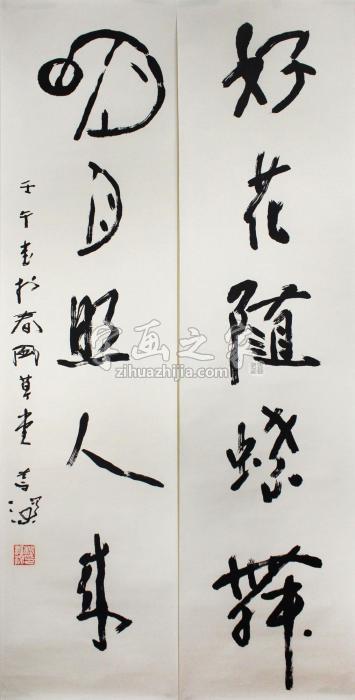 好花随蝶舞
明月照人来
壬午書於春風草堂
字画之家
zihuazhijia.com